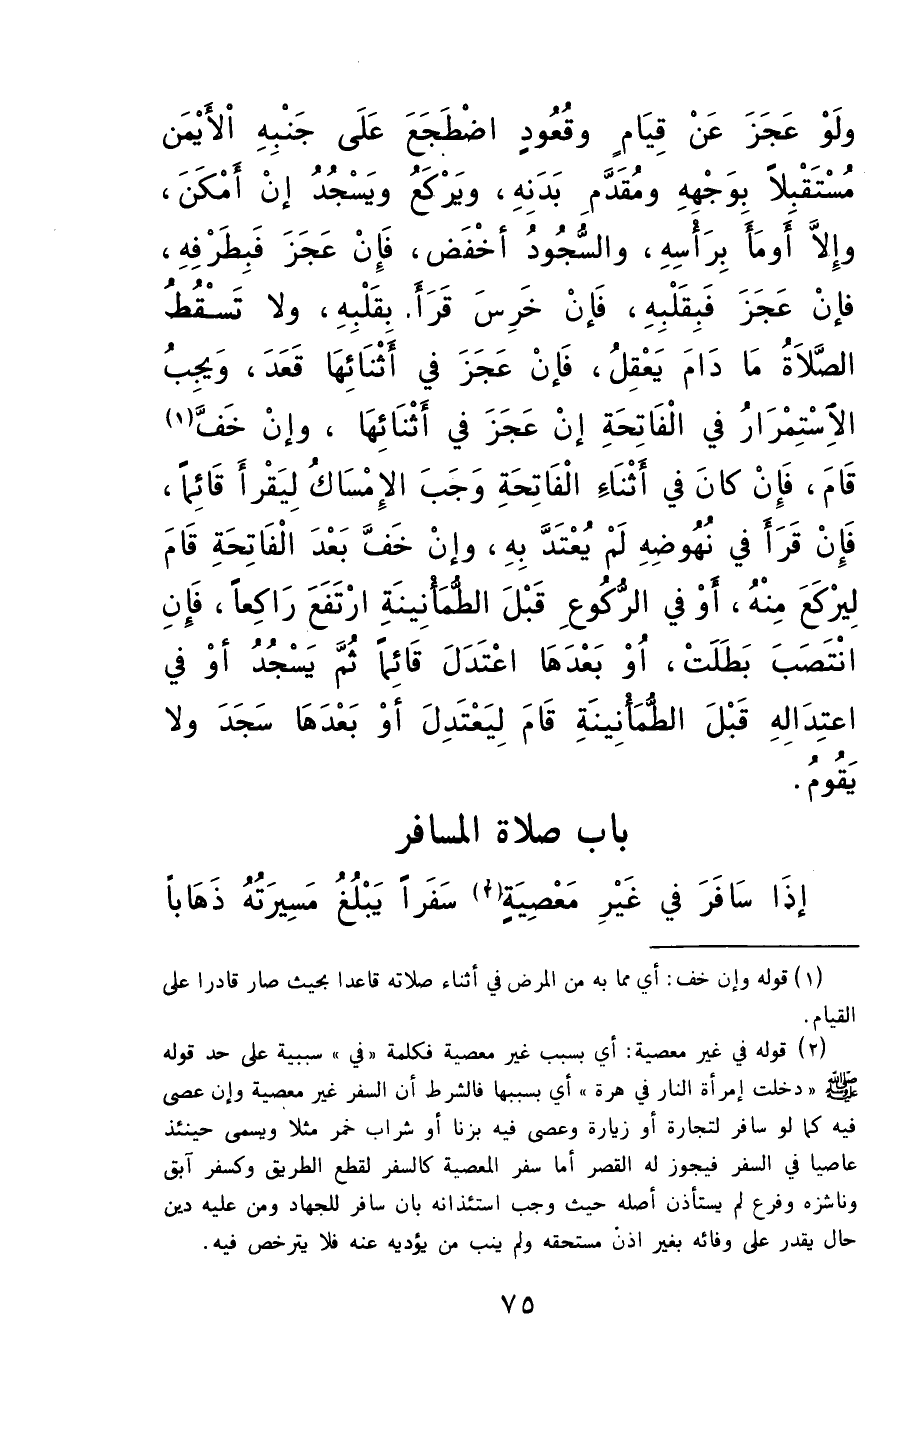 ولَوْ عَجَزَ عَنْ قِيَامٍ وقُعُودٍ اضْطَجَعَ عَلَى جَنْبِهِ اْلأَيْمَنِ
مُسْتَقْبِلاً بِوَجْهِهِ ومُقَدَّمِ بَدَنِهِ ، ويَرْكَعُ ويَسْجُدُ إنْ أَمْكَنَ ،
وإلاَّ أَومَأَ بِرَأْسِهِ ، والسُّجُودُ أخْفَض ، فَإِنْ عَجَزَ فَبِطَرْفِهِ ،
فإنْ عَجَزَ فَبِقَلْبِهِ ، فَإنْ خَرِسَ قَرَأَ بِقَلْبِهِ ، ولا تَسْقُطُ
الصَّلاَةُ مَا دَامَ يَعْقِلُ ، فَإنْ عَجَزَ في أَثْنَائِهَا قَعَدَ ، وَيجِبُ
الاِسْتِمْرَارُ في الْفَاتِحَةِ إنْ عَجَزَ في أَثْنَائِهَا ، وإنْ خَفَّ(١)
قَامَ ، فَإنْ كانَ في أَثْنَاءِ الْفَاتِحَةِ وَجَبَ الإمْسَاكُ لِيَقْرأَ قَائِماً ،
فَإنْ قَرَأَ في نُهُوضِهِ لَمْ يُعْتَدَّ بِهِ ، وإنْ خَفَّ بَعْدَ الْفَاتِحَةِ قَامَ
لِيرْكَعَ مِنْهُ ، أَوْ في الرُّكُوعِ قَبْلَ الطُّمَأْنِينَةِ ارْتَفَعَ رَاكِعاً ، فَإنِ
انْتَصَبَ بَطَلَتْ ، أوْ بَعْدَهَا اعْتَدَلَ قَائِماً ثُمَّ يَسْجُدُ أوْ في
اعتِدَالِهِ قَبْلَ الطُّمَأْنِينَةِ قَامَ لِيَعْتَدِلَ أوْ بَعْدَهَا سَجَدَ ولا
يَقُومُ .
باب صلاة المسافر
إذَا سَافَرَ في غَيْرِ مَعْصِيَةٍ(٢) سَفَراً يَبْلُغُ مَسِيرَتُهُ ذَهَاباً
(١) قوله وإن خف : أي مما به من المرض في أثناء صلاته قاعدا بحيث صار قادرا على
القيام .
(٢) قوله في غير معصية : أي بسبب غير معصية فكلمة «في» سببية على حد قوله
ﷺ «دخلت إمرأة النار في هرة» أي بسببها فالشرط أن السفر غير معصية وإن عصى
فيه كما لو سافر لتجارة أو زيارة وعصى فيه بزنا أو شراب خمر مثلا ويسمى حينئذ
عاصيا في السفر فيجوز له القصر أما سفر المعصية كالسفر لقطع الطريق وكسفر آبق
وناشزه وفرع لم يستأذن أصله حيث وجب استئذانه بان سافر للجهاد ومن عليه دين
حال يقدر على وفائه بغير اذنْ مستحقه ولم ينب من يؤديه عنه فلا يترخص فيه .
٧٥